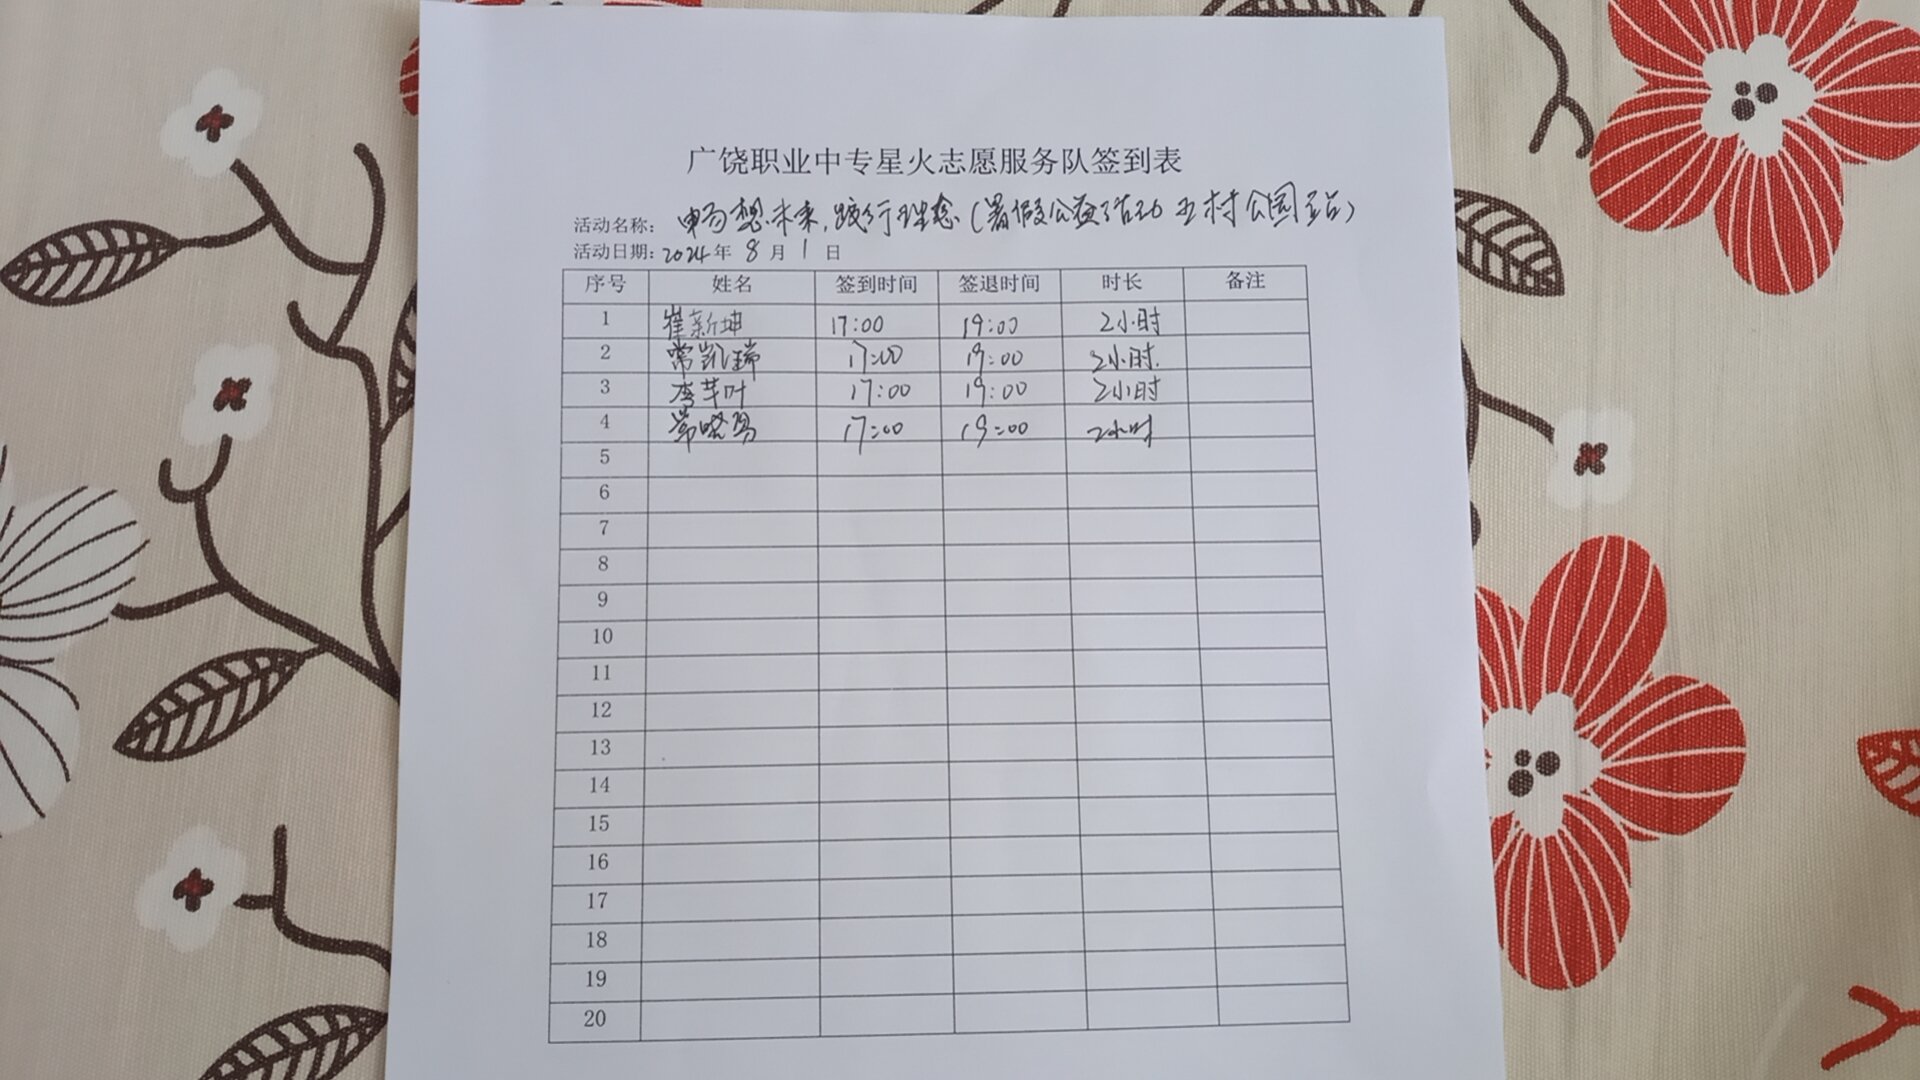 广饶职业中专星火志愿服务队签到表
活动名称: 畅想未来,践行理念(暑假公益活动 五村公园站)
活动日期: 2024年 8 月 1 日
序号 姓名 签到时间 签退时间 时长 备注
1 崔新坤 17:00 19:00 2小时
2 常凯瑞 17:00 19:00 2小时.
3 李芊叶 17:00 19:00 2小时
4 常晓 17:00 19:00 2小时
5
6
7
8
9
10
11
12
13
14
15
16
17
18
19
20